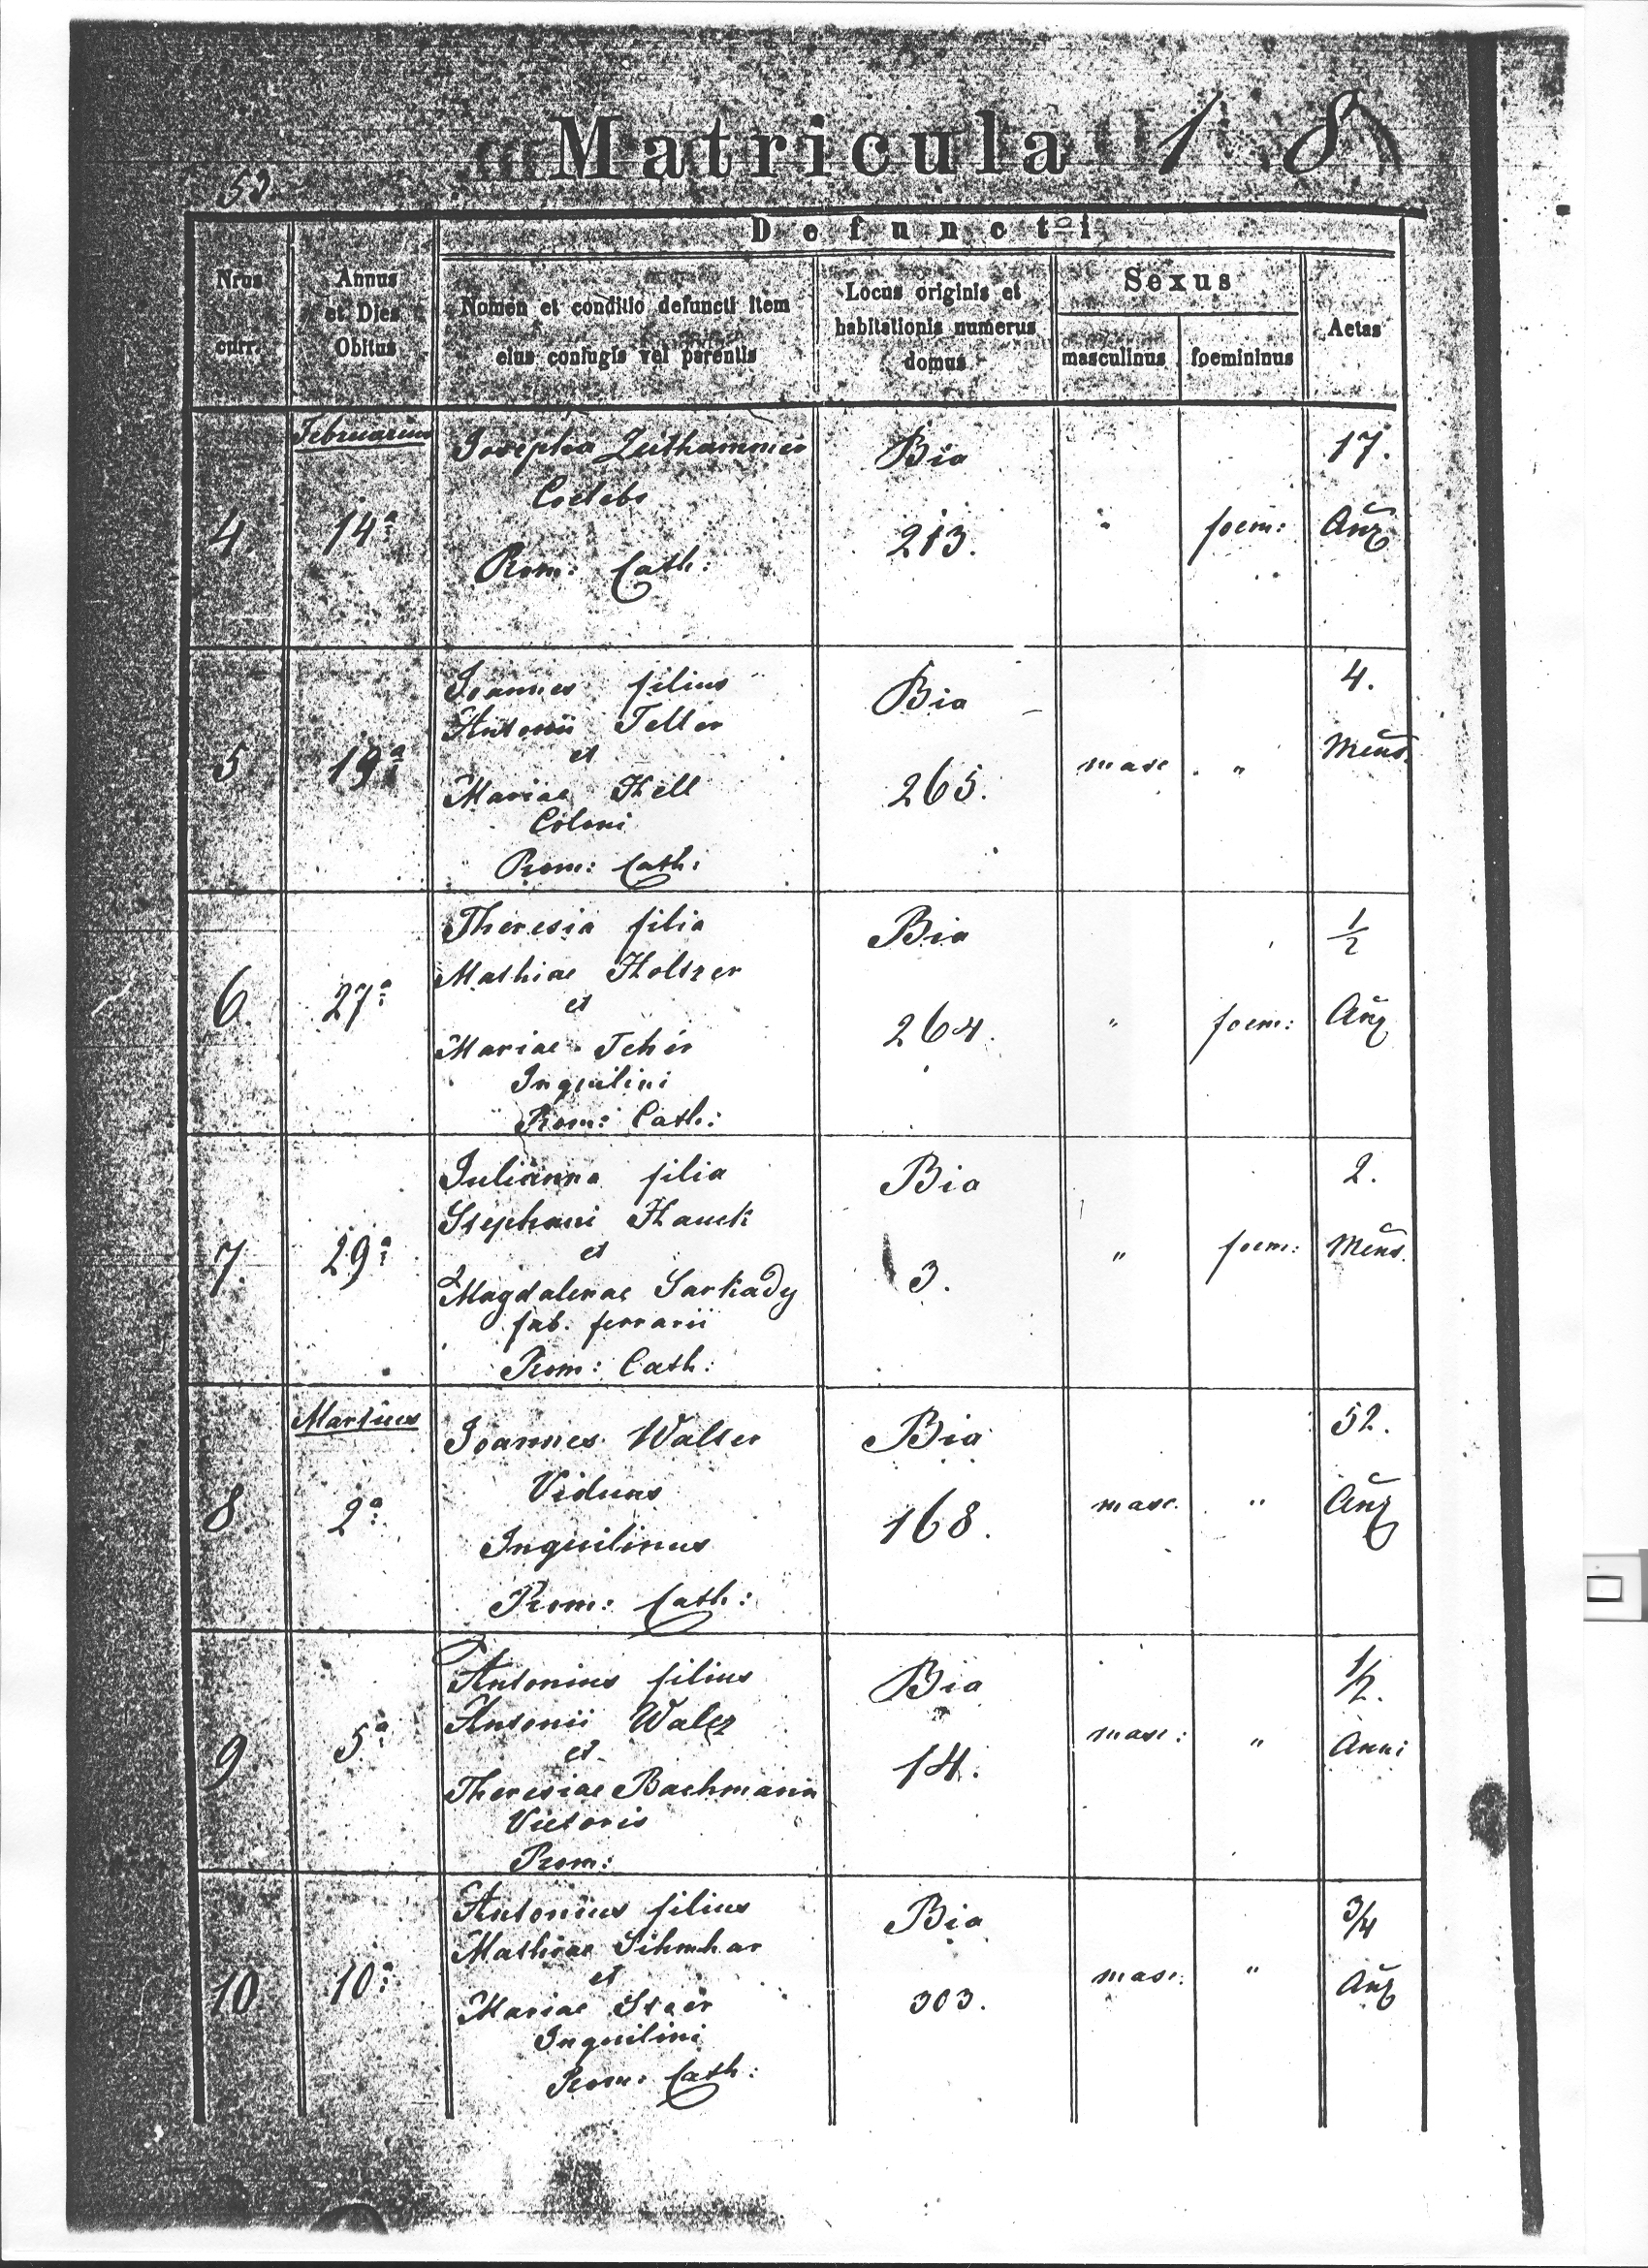 Matricula 1 8
53
Defuncti
Nrus curr.
Annus et Dies Obitus
Nomen et conditio defuncti item eius coniugis vel parentis
Locus originis et habitationis numerus domus
Sexus
masculinus
foemininus
Aetas
Februarius
4.
14ª
Josepha Zeithammer
Coelebs
Rom: Cath:
Bia
213.
"
foem:
17.
Añz
5
19ª
Joannes filius
Antonii Feller
et
Mariae Hell
Coloni
Rom: Cath:
Bia
265.
masc
"
4.
Meñs.
6.
27ª
Theresia filia
Mathiae Holtzer
et
Mariae Fehér
Inquilini
Rom: Cath:
Bia
264.
"
foem:
1/2
Añz
7.
29ª
Julianna filia
Stephani Hauck
et
Magdalenae Sarkady
fab. ferrarii
Rom: Cath:
Bia
3.
"
foem:
2.
Meñs.
Martius
8
2ª
Joannes Walter
Viduus
Inquilinus
Rom: Cath:
Bia
168.
masc.
"
52.
Añz
9
5ª
Antonius filius
Antonii Walcz
et
Theresiae Bachmann
Victoris
Rom:
Bia
14.
masc:
"
1/2.
Anni
10
10ª
Antonius filius
Mathiae
et
Mariae
Inquilini
Rom: Cath:
Bia
303.
masc:
"
3/4
Añz